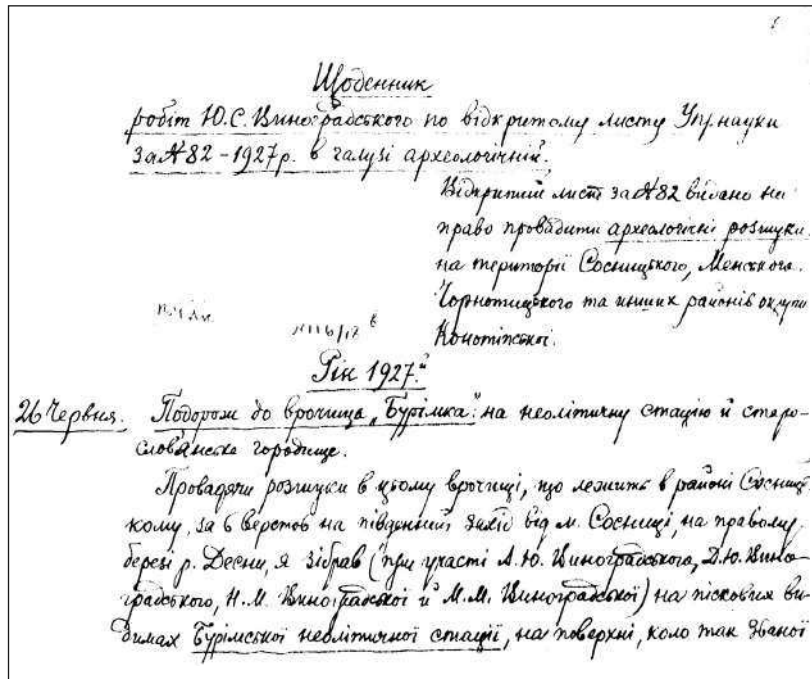 Щоденник
робіт Ю.С. Виноградського по відкритому листу Упр. науки
за № 82 - 1927 р. в галузі археологічній.
Відкритий лист за № 82 видано на
право провадити археологічні розшуки
на території Сосницького, Менського,
Чорнотицького та инших районів округи
Конотіпської.
№ 116/17 в
Рік 1927.й
26 Червня. Подорож до врочища „Бурімка" на неолітичну стацію й старо-
слов'янське городище.
Провадячи розшуки в цьому врочищі, що лежить в районі Сосниць-
кому, за 6 верстов на південний захід від м. Сосниці, на правому
березі р. Десни, я зібрав (при участі А.Ю. Виноградського, Д.Ю. Вино-
градського, Н.М. Виноградської й М.М. Виноградської) на пісковия ви-
димах Бурімської неолітичної стації, на поверхні, коло так званої